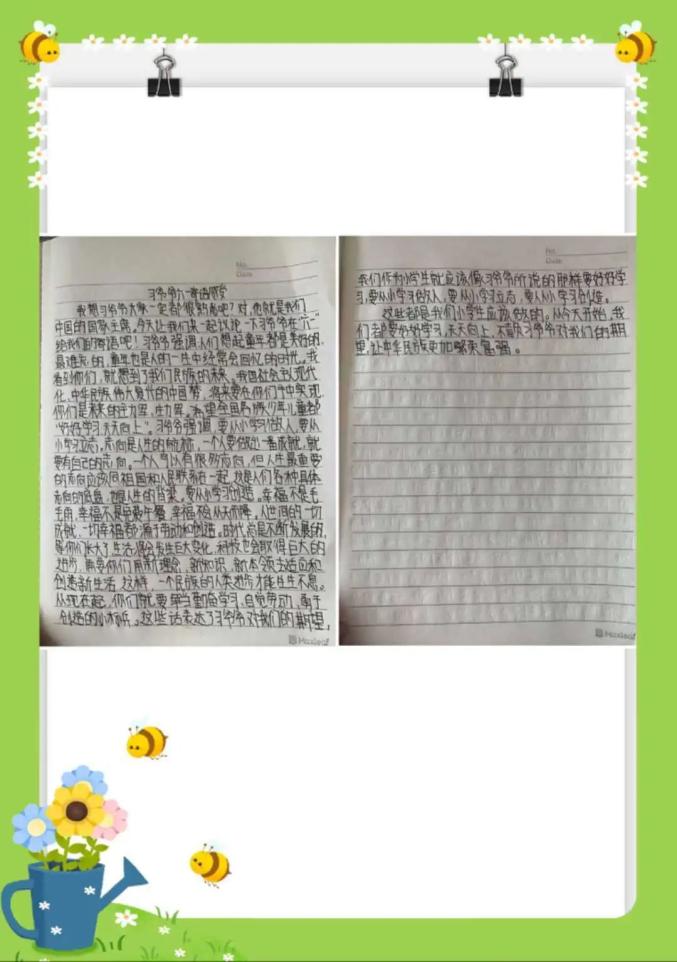 No.
Date
习爷爷六一寄语感受
我想习爷爷大家一定都很熟悉吧？对，他就是我们
中国的国家主席。今天让我们来一起以说一下习爷爷在“六一”
给我们的寄语吧！习爷爷强调人们想起童年都是美好的，
最难忘的，童年也是人的一生中经常会回忆的时光。我
看到你们，就想到了我们民族的未来。我国社会主义现代
化，中华民族伟大复兴的中国梦，将来要在你们手中实现，
你们是未来的主力军，生力军。希望全国各族少年儿童都
“好好学习天天向上”。习爷爷强调，要从小学习做人，要从
小学习立志。志向是人生的航标，一个人要做出一番成就，就
要有自己的志向。一个人可以有很多志向，但人生最重要
的志向应该同祖国和人民联系在一起，这是人们各种具体
志向的底盘，也是人生的脊梁。要从小学习创造。幸福不是毛
毛雨，幸福不是免费午餐，幸福不会从天而降。人世间的一切
成就，一切幸福都源于劳动和创造。时代总是不断发展的，
等你们长大了，生活将会发生巨大变化，科技也会取得巨大的
进步，需要你们用新理念，新知识，新本领去适应和
创造新生活，这样，一个民族的人类进步才能生生不息。
从现在起，你们就要争当勤奋学习，自觉劳动，勇于
创造的小标兵。这些话表达了习爷爷对我们的期望，
Maxleaf
No.
Date
我们作为小学生就应该像习爷爷所说的那样要好好学
习，要从小学习做人，要从小学习立志，要从小学习创造。
这些都是我们小学生应该做的。从今天开始，我
们都要好好学习，天天向上，不辜负习爷爷对我们的期
望，让中华民族更加繁荣富强。
Maxleaf